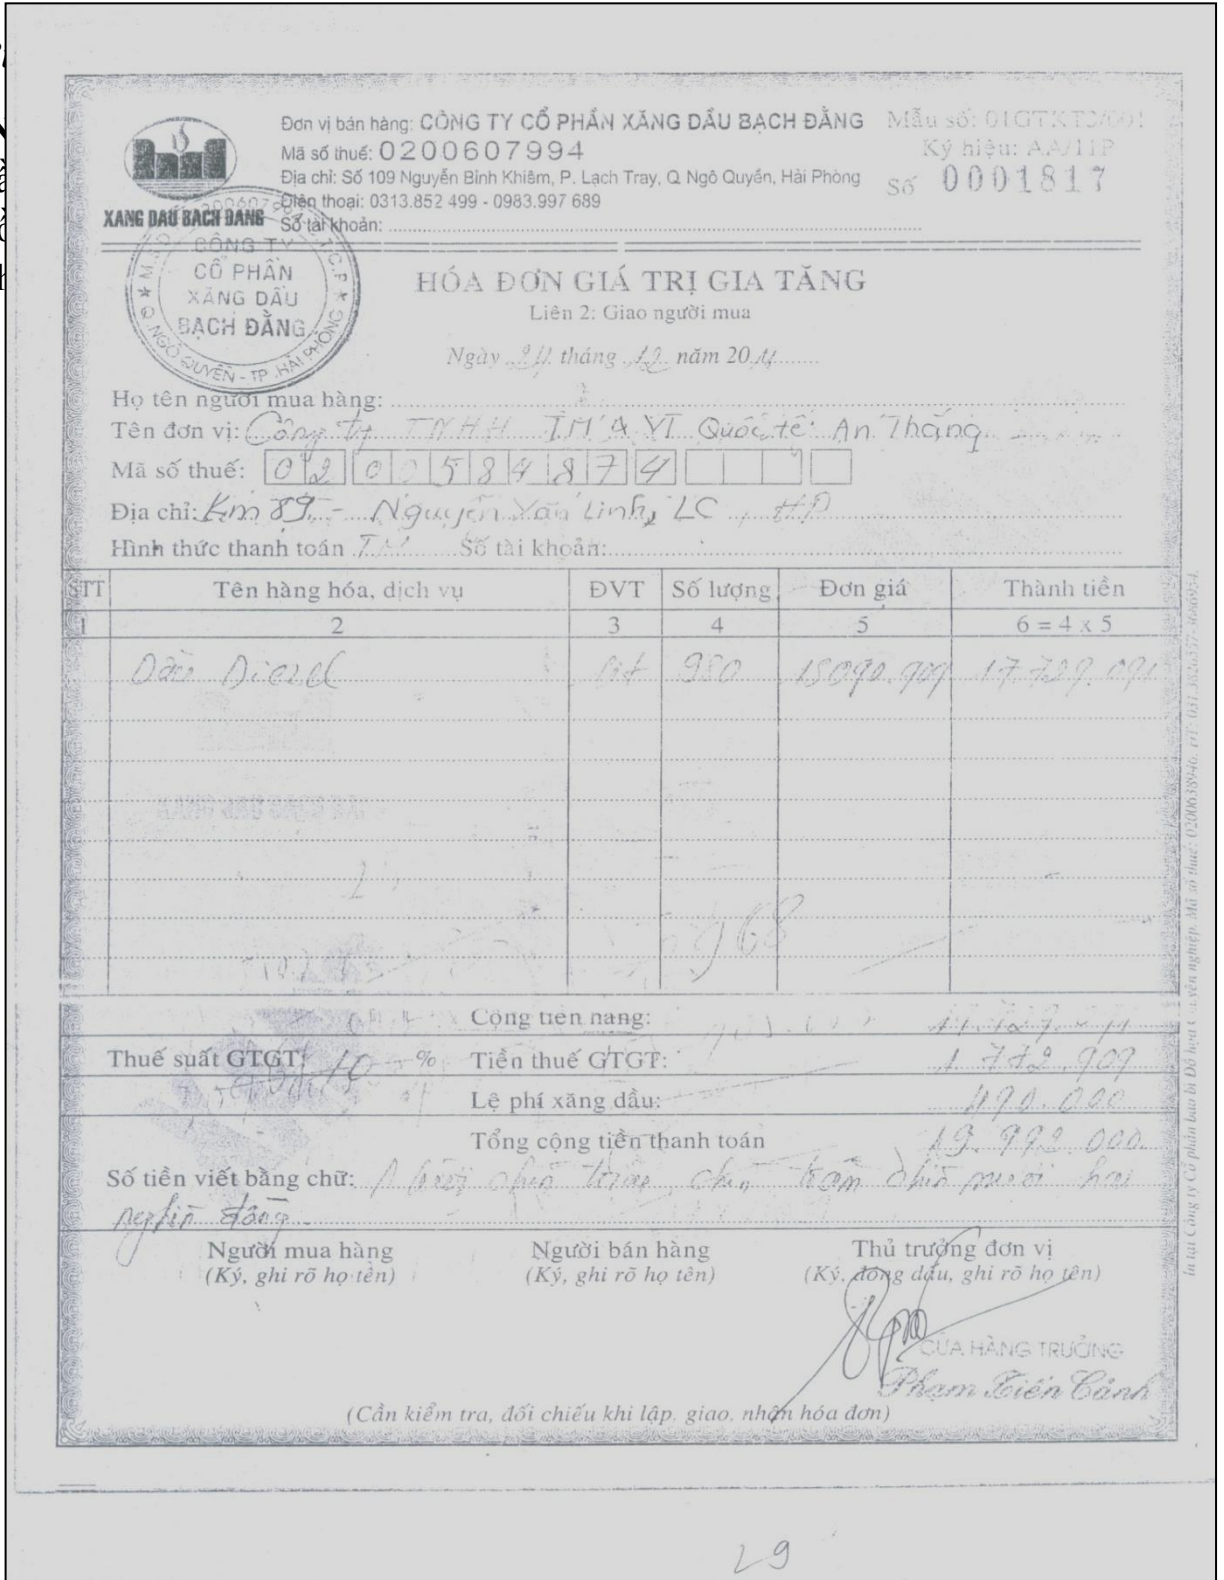 Đơn vị bán hàng: CÔNG TY CỔ PHẦN XĂNG DẦU BẠCH ĐẰNG
Mã số thuế: 0200607994
Địa chỉ: Số 109 Nguyễn Bỉnh Khiêm, P. Lạch Tray, Q Ngô Quyền, Hải Phòng
Điện thoại: 0313.852 499 - 0983.997 689
Số tài khoản:
Mẫu số: 01GTKT3/001
Ký hiệu: AA/11P
Số 0001817
XANG DAU BACH DANG
CÔNG TY
CỔ PHẦN
XĂNG DẦU
BẠCH ĐẰNG
Q. NGÔ QUYỀN - TP. HẢI PHÒNG
HÓA ĐƠN GIÁ TRỊ GIA TĂNG
Liên 2: Giao người mua
Ngày tháng 12 năm 2011
Họ tên người mua hàng:
Tên đơn vị: Công ty TNHH TM & VT Quốc tế An Thắng
Mã số thuế: 0200584874
Địa chỉ: Km 89 - Nguyễn Văn Linh, LC, HP
Hình thức thanh toán TM Số tài khoản:
STT Tên hàng hóa, dịch vụ ĐVT Số lượng Đơn giá Thành tiền
1 2 3 4 5 6 = 4 x 5
Dầu Diezel lít 980 18090.909 17.729.091
968
Cộng tiền hàng: 17.729.091
Thuế suất GTGT: 10 % Tiền thuế GTGT: 1.772.909
Lệ phí xăng dầu: 490.000
Tổng cộng tiền thanh toán 19.992.000
Số tiền viết bằng chữ: Mười chín triệu chín trăm chín mươi hai
nghìn đồng
Người mua hàng Người bán hàng Thủ trưởng đơn vị
(Ký, ghi rõ họ tên) (Ký, ghi rõ họ tên) (Ký, đóng dấu, ghi rõ họ tên)
CỬA HÀNG TRƯỞNG
Phạm Tiến Cảnh
(Cần kiểm tra, đối chiếu khi lập, giao, nhận hóa đơn)
29